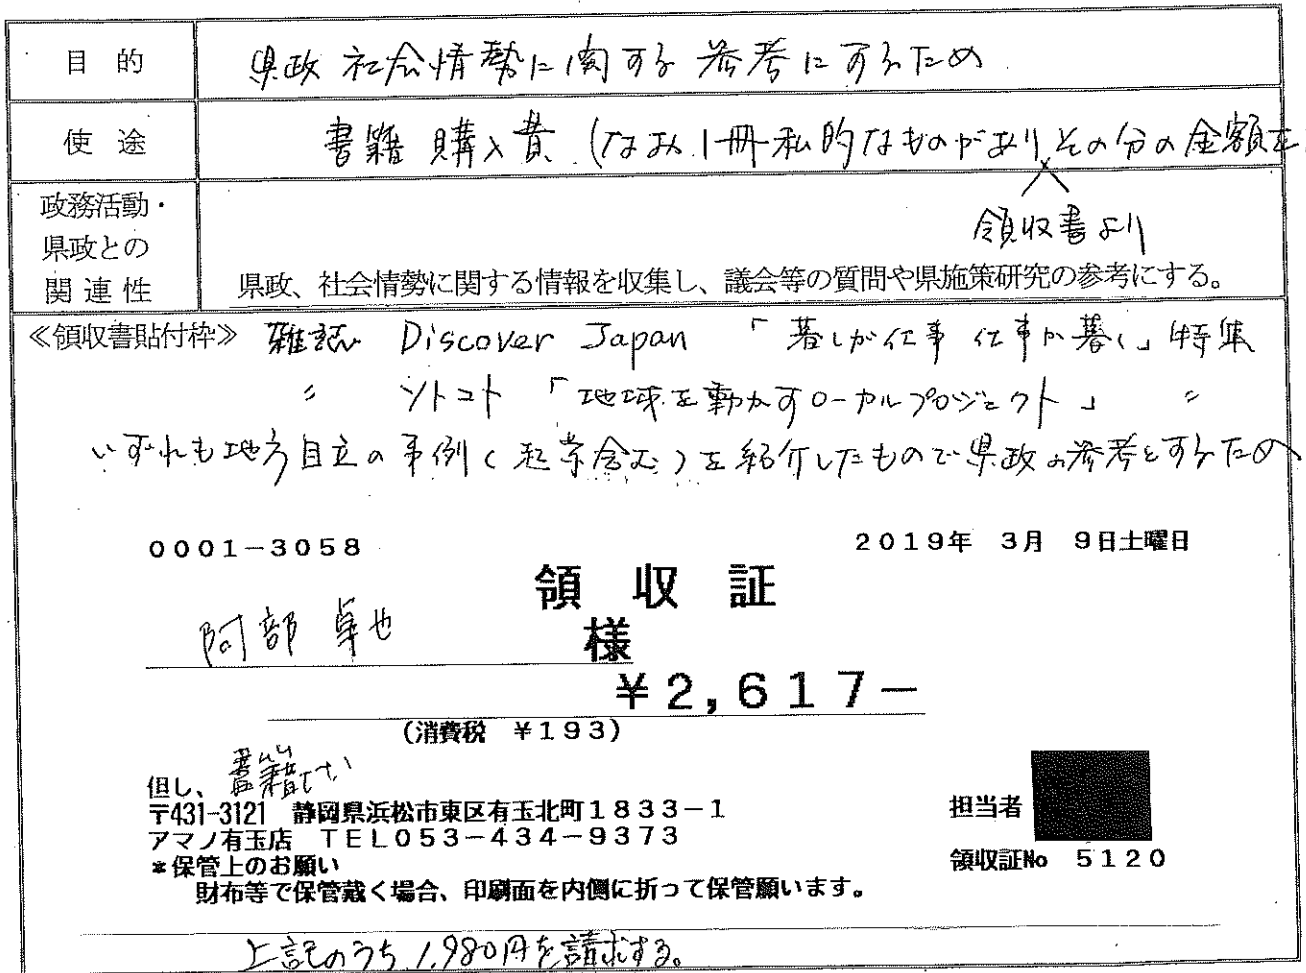 目 的
県政 社会情勢に関する 参考にするため
使 途
書籍 購入費 (なお、1冊私的なものがあり その分の金額を
領収書より
政務活動・
県政との
関連性
県政、社会情勢に関する情報を収集し、議会等の質問や県施策研究の参考にする。
≪領収書貼付枠≫ 雑誌 Discover Japan 「暮しが仕事 仕事が暮し」特集
〃 ソトコト 「地球を動かすローカルプロジェクト」 〃
いずれも地方自立の事例(起業含む)を紹介したもので県政の参考とするため
0001-3058
2019年 3月 9日土曜日
領 収 証
阿部 卓也 様
¥2,617-
(消費税 ¥193)
但し、書籍代
〒431-3121 静岡県浜松市東区有玉北町1833-1
担当者
アマノ有玉店 TEL053-434-9373
領収証No 5120
*保管上のお願い
財布等で保管戴く場合、印刷面を内側に折って保管願います。
上記のうち 1,980円を請求する。